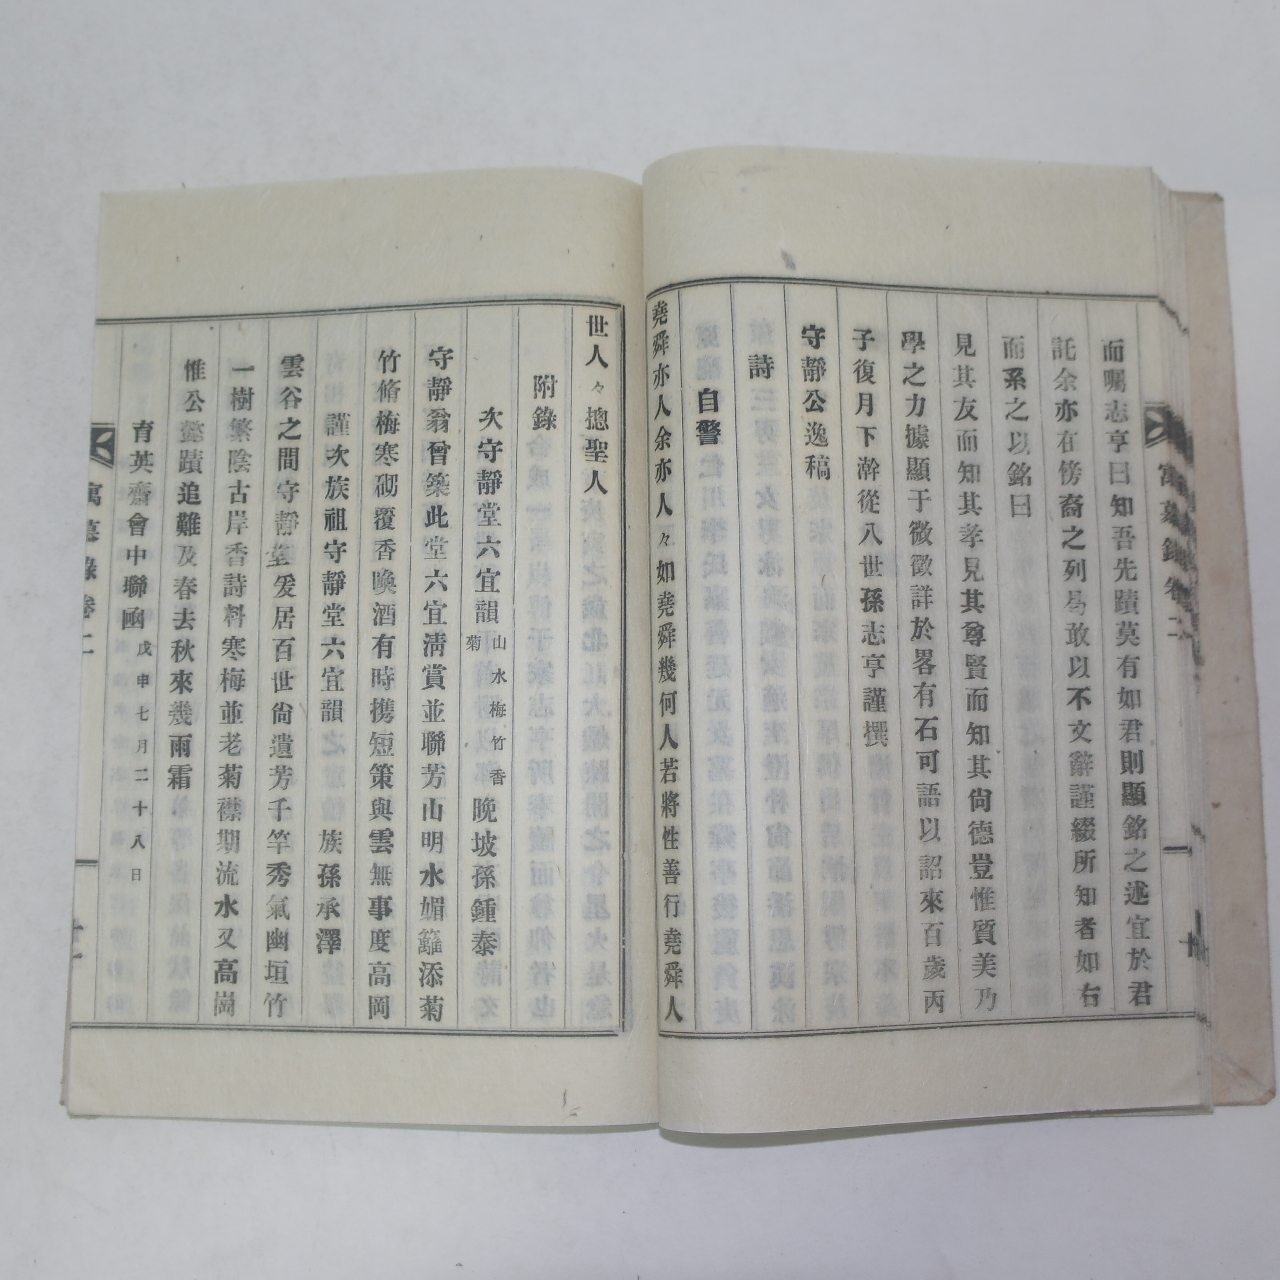 而囑志亨曰知吾先蹟莫有如君則顯銘之述宜於君
託余亦在傍裔之列曷敢以不文辭謹綴所知者如右
而系之以銘曰
見其友而知其孝見其尊賢而知其尙德豈惟質美乃
學之力據顯于微徵詳於畧有石可語以詔來百歲丙
子復月下澣從八世孫志亨謹撰
守靜公逸稿
詩
自警
堯舜亦人余亦人々如堯舜幾何人若將性善行堯舜人
寓慕錄卷二
世人々摠聖人
附錄
次守靜堂六宜韻 山水梅竹香菊 晚坡孫鍾泰
守靜翁曾築此堂六宜淸賞並聯芳山明水媚籬添菊
竹脩梅寒砌覆香喚酒有時携短策與雲無事度高岡
謹次族祖守靜堂六宜韻 族孫承澤
雲谷之間守靜堂爰居百世尙遺芳千竿秀氣幽垣竹
一樹繁陰古岸香詩料寒梅並老菊襟期流水又高崗
惟公懿蹟追難及春去秋來幾雨霜
育英齋會中聯函 戊申七月二十八日
寓慕錄卷二
十一